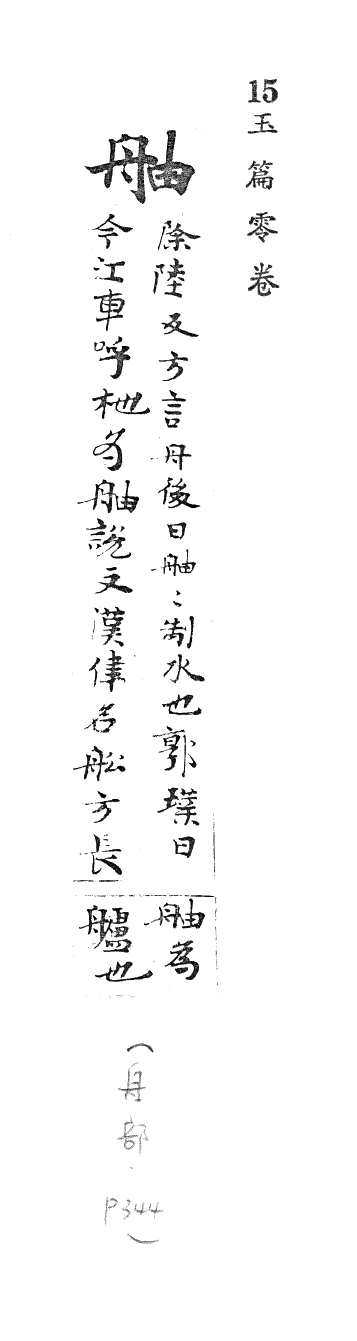 15 玉篇零卷
舳
除陸反方言舟後曰舳〻制水也郭璞曰
今江東呼柂為舳說文漢律名舩方長
舳為
艫也
(舟部.P344)